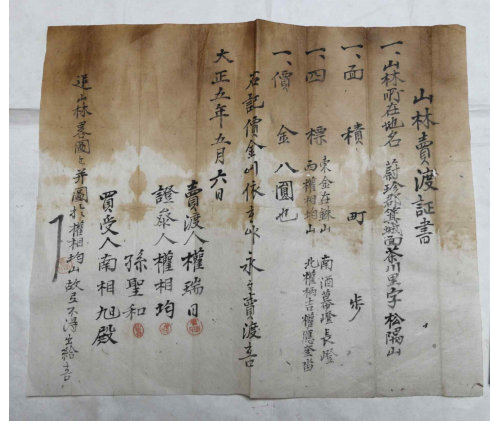 山林賣渡証書
一、山林所在地名 蔚珍郡箕城面茶川里字松隅山
一、面積 町 步
一、四標 東金在 山 南酒幕嶝長嶝
西權相均山 北權柄吉權 畓
一、價金八圓也
右記價金 依 永永賣渡喜
大正五年五月六日
賣渡人權瑞日
證參人權相均
孫聖和
買受人南相旭殿
追山林 圖 幷圖於權相均山故로不得出給喜